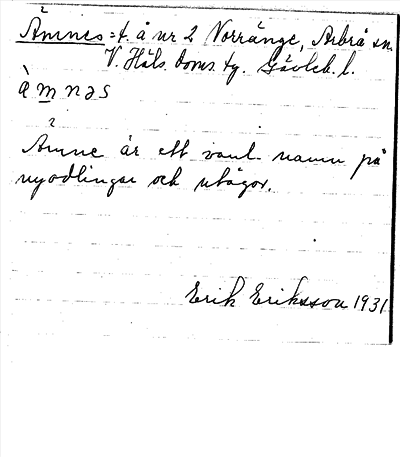 Ämnes = t. å nr 2 Norränge, Arbrå sn.
V. Häls. doms. tg. Gävleb. l.
à m n ə s
Ämne är ett vanl. namn på
nyodlingar och utägor.
Erik Eriksson 1931